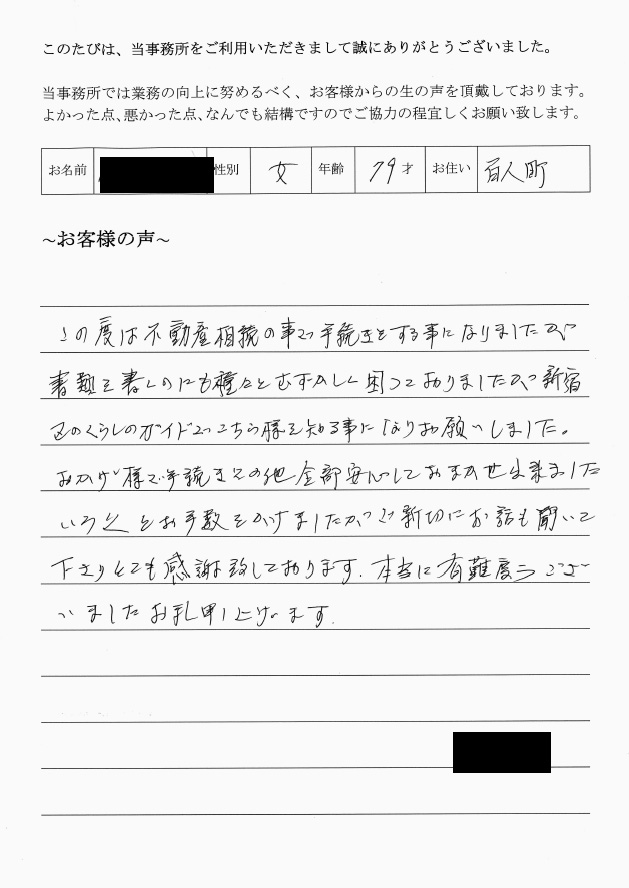 このたびは、当事務所をご利用いただきまして誠にありがとうございました。
当事務所では業務の向上に努めるべく、お客様からの生の声を頂戴しております。
よかった点、悪かった点、なんでも結構ですのでご協力の程宜しくお願い致します。
お名前 性別 女 年齢 79才 お住い 百人町
~お客様の声~
この度は不動産相続の事で手続きをする事になりましたが
書類を書くのにも種々とむずかしく困っておりましたが新宿
区のくらしのガイドでこちら様を知る事になりお願いしました。
おかげ様で手続きその他全部安心しておまかせ出来ました
いろ々とお手数をかけましたがご親切にお話も聞いて
下さりとても感謝致しております。本当に有難度うござ
いましたお礼申し上げます。